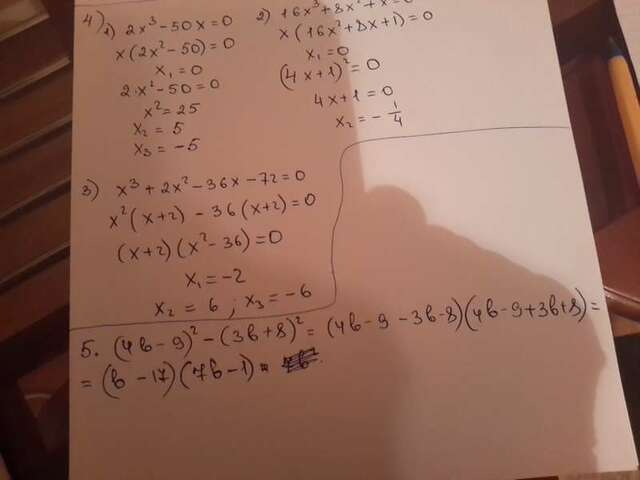 4) 1) 2x³ - 50x = 0
x(2x² - 50) = 0
x₁ = 0
2·x² - 50 = 0
x² = 25
x₂ = 5
x₃ = -5
2) 16x³ + 8x² + x = 0
x(16x² + 8x + 1) = 0
x₁ = 0
(4x + 1)² = 0
4x + 1 = 0
x₂ = - 1/4
3) x³ + 2x² - 36x - 72 = 0
x²(x + 2) - 36(x + 2) = 0
(x + 2)(x² - 36) = 0
x₁ = -2
x₂ = 6 ; x₃ = -6
5. (4b - 9)² - (3b + 8)² = (4b - 9 - 3b - 8)(4b - 9 + 3b + 8) =
= (b - 17)(7b - 1) =